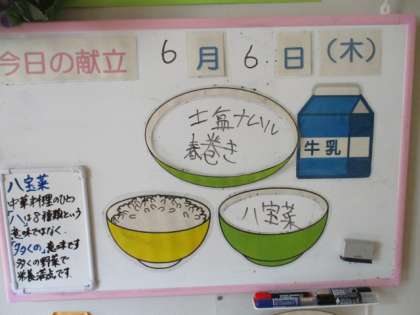 今日の献立 6月6日(木)
土塩ナムル
春巻き
牛乳
八宝菜
八宝菜
中華料理のひとつ
八は8種類という
意味ではなく、
「多くの」意味です
多くの野菜で
栄養満点です。